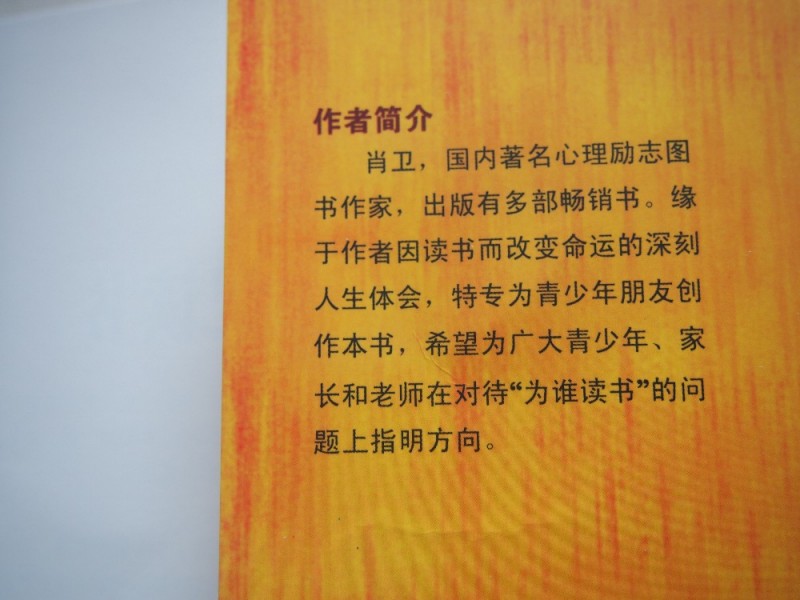 作者简介
肖卫，国内著名心理励志图
书作家，出版有多部畅销书。缘
于作者因读书而改变命运的深刻
人生体会，特专为青少年朋友创
作本书，希望为广大青少年、家
长和老师在对待“为谁读书”的问
题上指明方向。